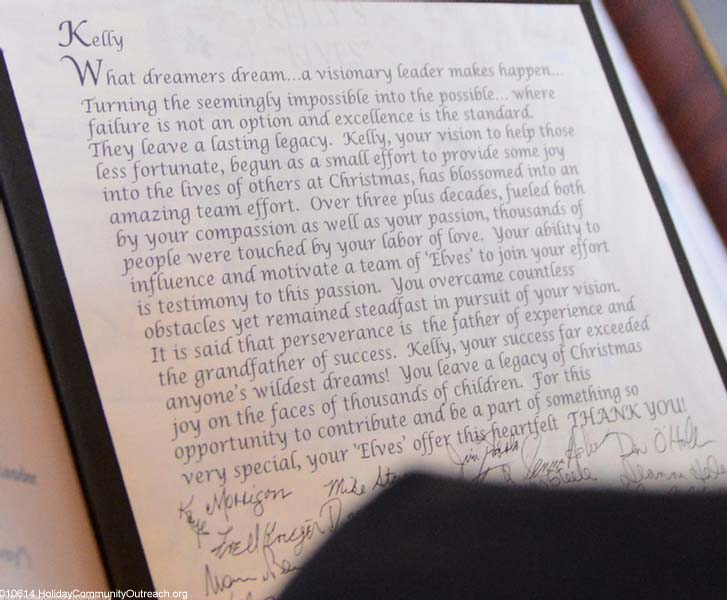 Kelly
What dreamers dream...a visionary leader makes happen...
Turning the seemingly impossible into the possible... where
failure is not an option and excellence is the standard.
They leave a lasting legacy. Kelly, your vision to help those
less fortunate, begun as a small effort to provide some joy
into the lives of others at Christmas, has blossomed into an
amazing team effort. Over three plus decades, fueled both
by your compassion as well as your passion, thousands of
people were touched by your labor of love. Your ability to
influence and motivate a team of 'Elves' to join your effort
is testimony to this passion. You overcame countless
obstacles yet remained steadfast in pursuit of your vision.
It is said that perseverance is the father of experience and
the grandfather of success. Kelly, your success far exceeded
anyone's wildest dreams! You leave a legacy of Christmas
joy on the faces of thousands of children. For this
opportunity to contribute and be a part of something so
very special, your 'Elves' offer this heartfelt THANK YOU!
Morrigon Mike
010614.HolidayCommunityOutreach.org